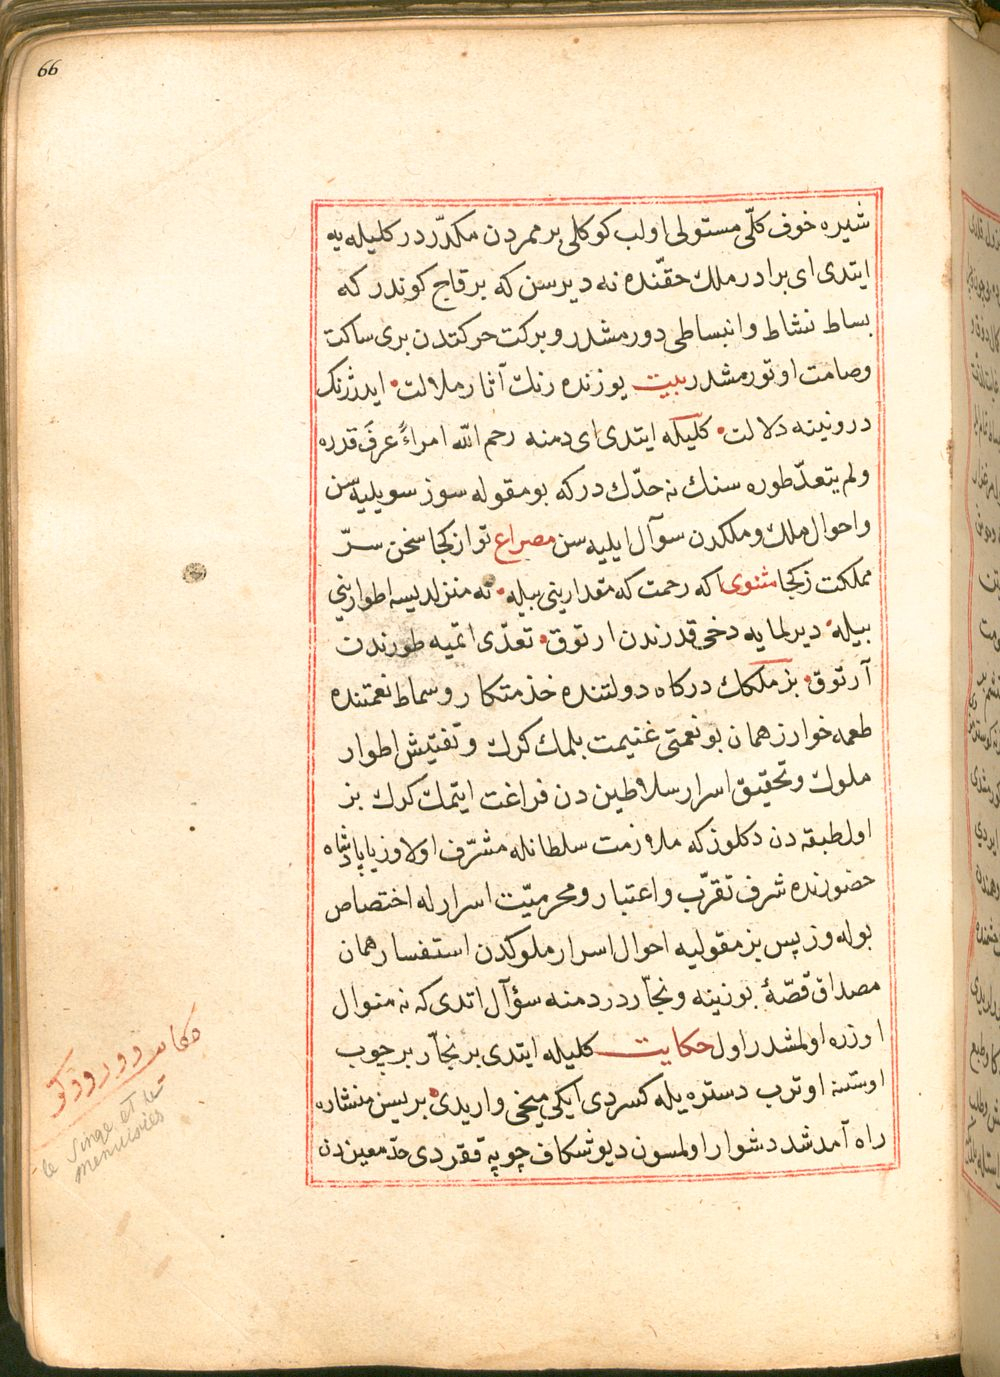 66
شیره خوف کلّی مستولی اولب کوکلی بر ممردن مکدّر در کلیله یه
ایتدی ای برادر ملك حقّنده نه دیرسن که بر قاج کوندر که
بساط نشاط وانبساطی دورمشدر و برکت حرکتدن بری ساکت
وصامت اوتورمشدر بیت یوزنده رنك آثار ملالت ایدر ژرنك
درونینه دلالت کلیله ایتدی ای دمنه رحم الله امراءً عرفَ قدره
ولم یتعدّ طوره سنك نه حدّك در که بو مقوله سوز سویلیه سن
واحوال ملك وملکدن سوآل ایلیه سن مصراع تو از کجا سخن سرّ
مملکت ز کجا مثنوی اکه رحمت که مقدارینی بیله نه منزلدیسه اطوارینی
بیله دیرلمایه دخی قدرندن ارتوق تعدّی اتمیه طورندن
آرتوق بز ملکك درکاه دولتنده خذمتکار و سماط نعمتنده
طعمه خوارز همان بو نعمتی غنیمت بلمك کرك و تفتیش اطوار
ملوك وتحقیق اسرار سلاطین دن فراغت ایتمك کرك بز
اول طبقه دن دکلوز که ملازمت سلطانله مشرّف اولاوز یا پادشاه
حضورنده شرف تقرّب واعتبار ومحرمیّت اسرارله اختصاص
بوله وز پس بز مقولیه احوال اسرار ملوکدن استفسار همان
مصداق قصّهٔ بوزینه ونجّاردر دمنه سؤآل اتدی که نه منوال
اوزره اولمشدر اول حکایت کلیله ایتدی بر نجّار بر چوب
اوستنه اوترب دستره یله کسردی ایکی میخی واریدی بریسن منشاره
راه آمد شد دشوار اولمسون دیو شکاف چوپه ققردی حدّ معین دن
le singe et le
menuisier